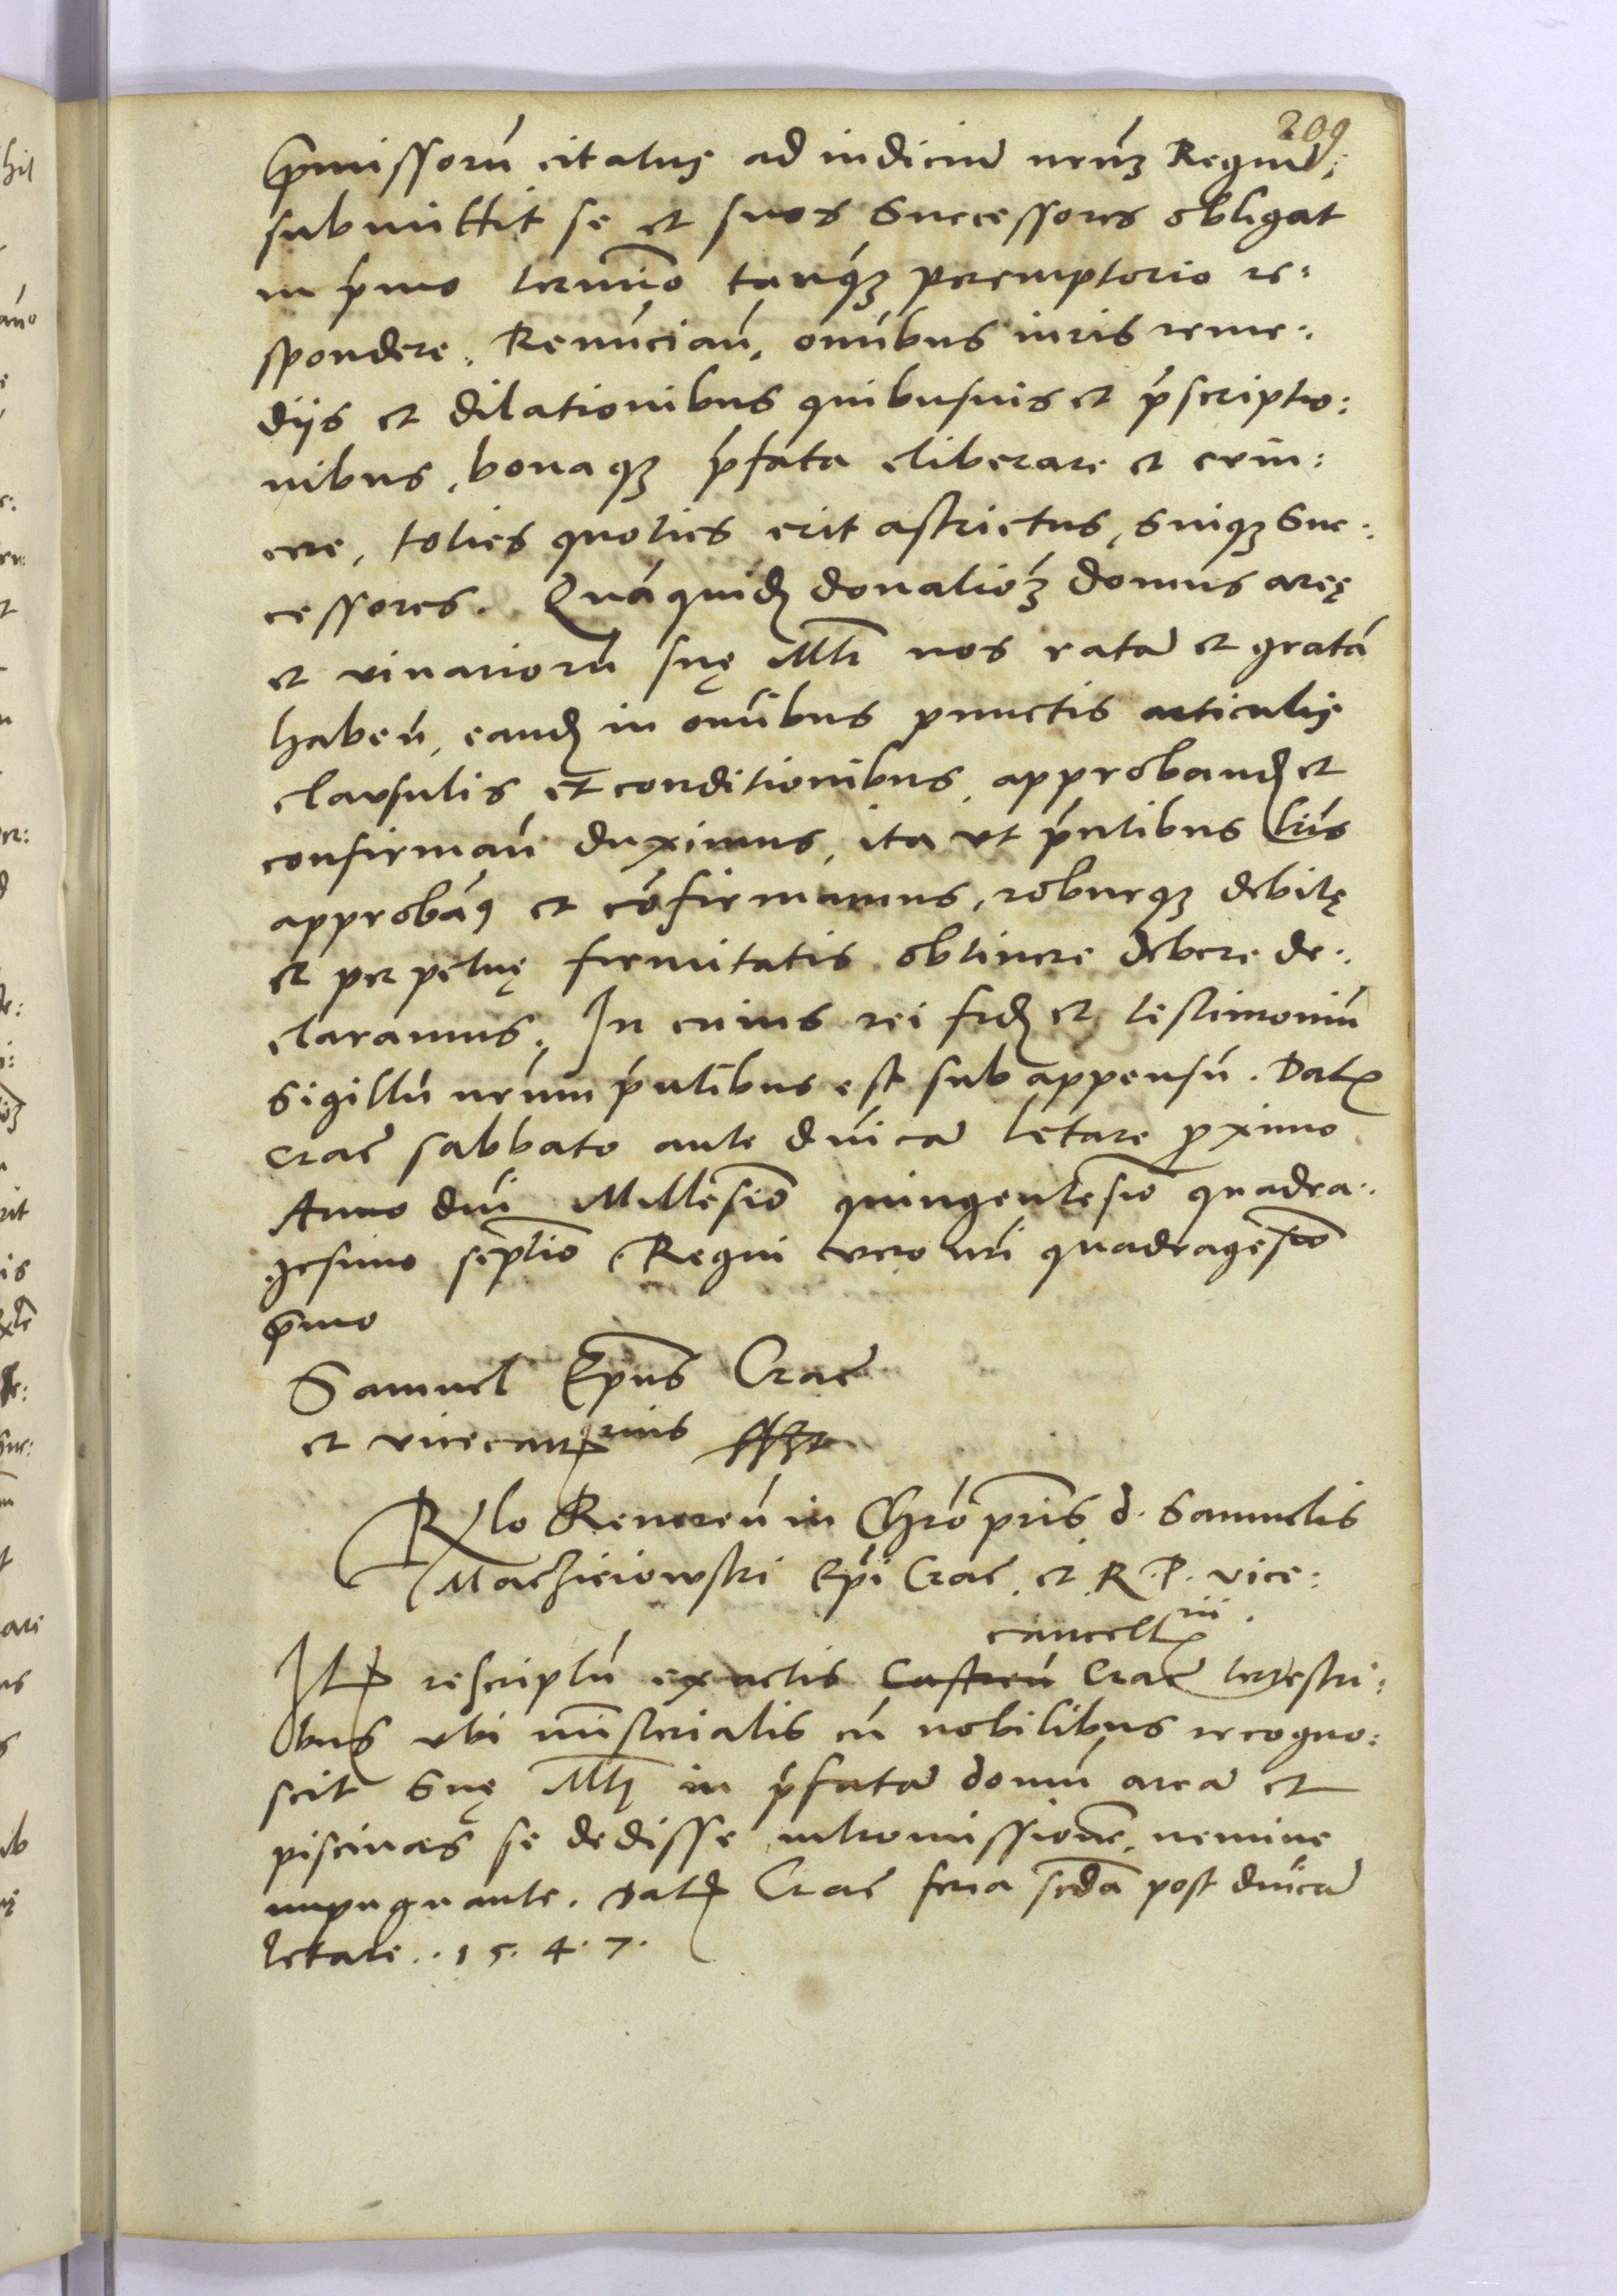 209
p̄missorū citatus ad iudiciū nrūȝ Regium̄,
submittit se et suos Successores obligat
in p̄mo termino tanq́ȝ peremptorio re:
spondere. Renúnciań, omībus iuris reme:
dijs et dilationibus quibusuis et p̄scriptio:
nibus, bonaqȝ p̄fata eliberare et euin:
cere, toties quoties erit astrictus, Suiqȝ Suc:
cessores. Quāquideȝ donatiōȝ domus areę
et vinariorū suę Mti nos ratā et gratā
habeń, eandeȝ in omībus punctis articulis
clausulis et conditionibus approband et
confirmań duximus, ita vt p̄ntibus lrīs
approbām9 et cōfirmamus, roburqȝ debitę
et perpetuę firmitatis obtinere debere de:
claramus. In cuius rei fid et testimoniū
Sigillū nrum p̄ntibus est sub appensū. Dat
Crac sabbato ante dnicā letare proximo
Anno dni Millesiō quingentesiō quadra:
gesimo septiō. Regni vero nri quadragesiō
p̄mo
Samuel Ep̄us Crac
et vicecanrius sssst
Rlo Reuereń in Chrō pris d. Samuelis
Macziciowski Ep̄i Crac. et R. P. vice:
cancellrii.
Itē rescriptū ex actis Castreń Crac terrestri:
bus vbi ministerialis cū nobilibus recogno:
scit Suę Mti in p̄fatā domū areā et
piscinas se dedisse intromissionē, nemine
impugnante. Dat Crac feria scdā post dnicā
letare. . 15. 4. 7.